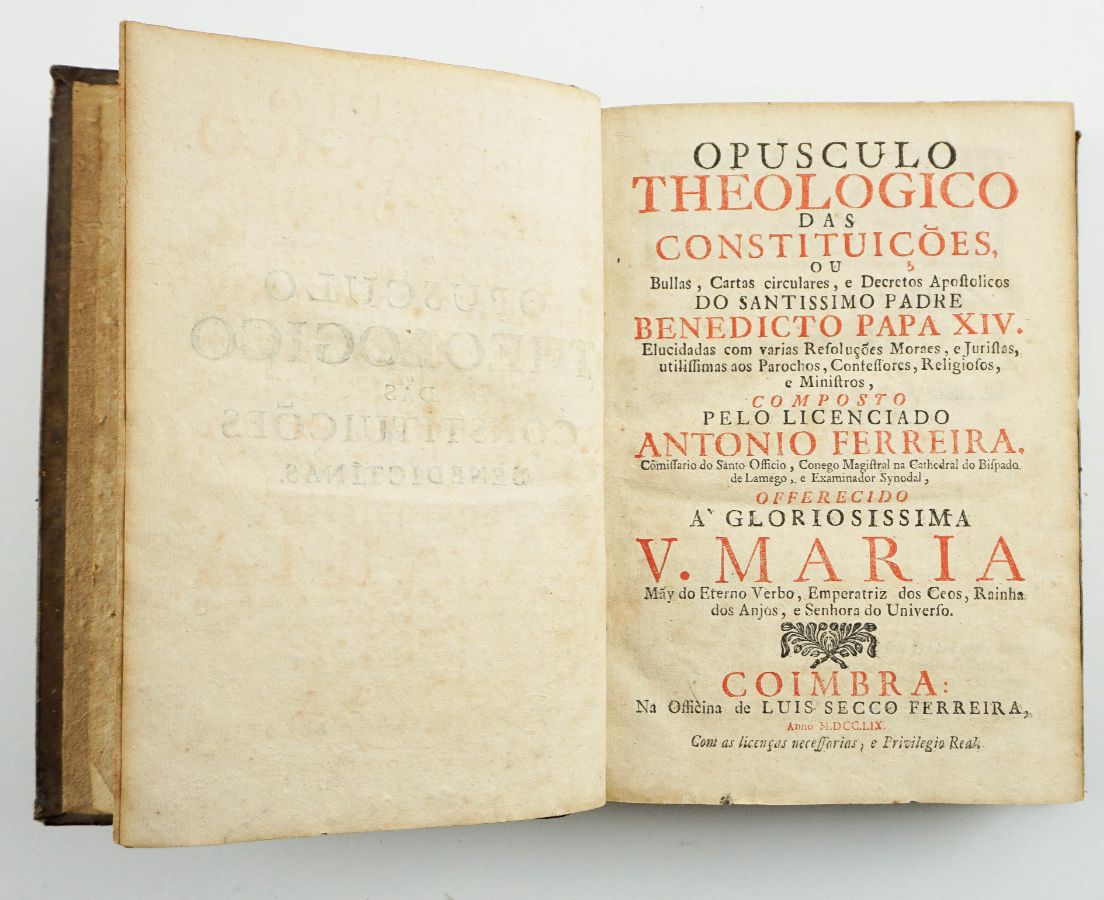 OPUSCULO
THEOLOGICO
DAS
CONSTITUICÕES
BENEDICTINAS.
OPUSCULO
THEOLOGICO
DAS
CONSTITUICÕES,
OU
Bullas, Cartas circulares, e Decretos Apoſtolicos
DO SANTISSIMO PADRE
BENEDICTO PAPA XIV.
Elucidadas com varias Reſoluções Moraes, e Juriſtas,
utiliſſimas aos Parochos, Confeſſores, Religioſos,
e Miniſtros,
COMPOSTO
PELO LICENCIADO
ANTONIO FERREIRA.
Cõmiſſario do Santo Officio, Conego Magiſtral na Cathedral do Biſpado
de Lamego, e Examinador Synodal,
OFFERECIDO
A' GLORIOSISSIMA
V. MARIA
Mãy do Eterno Verbo, Emperatriz dos Ceos, Rainha
dos Anjos, e Senhora do Univerſo.
COIMBRA:
Na Officina de LUIS SECCO FERREIRA,
Anno M.DCC.LIX.
Com as licenças neceſſarias, e Privilegio Real.